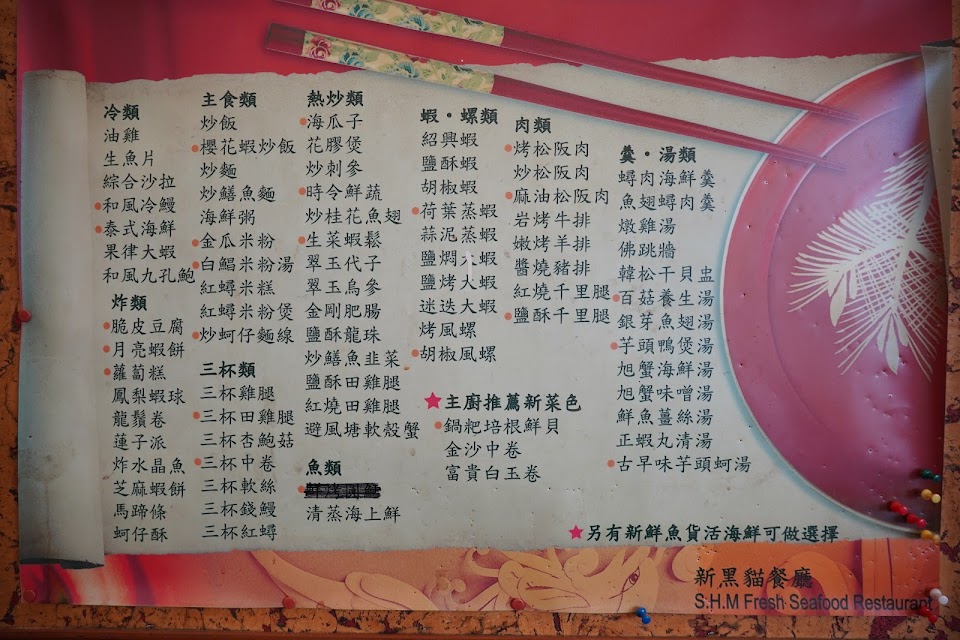 冷類
油雞
生魚片
綜合沙拉
和風冷鰻
泰式海鮮
果律大蝦
和風九孔鮑
炸類
脆皮豆腐
月亮蝦餅
蘿蔔糕
鳳梨蝦球
龍鬚卷
蓮子派
炸水晶魚
芝麻蝦餅
馬蹄條
蚵仔酥
主食類
炒飯
櫻花蝦炒飯
炒麵
炒鱔魚麵
海鮮粥
金瓜米粉
白鯧米粉湯
紅蟳米糕
紅蟳米粉煲
炒蚵仔麵線
三杯類
三杯雞腿
三杯田雞腿
三杯杏鮑菇
三杯中卷
三杯軟絲
三杯錢鰻
三杯紅蟳
熱炒類
海瓜子
花膠煲
炒刺參
時令鮮蔬
炒桂花魚翅
生菜蝦鬆
翠玉代子
翠玉烏參
金剛肥腸
鹽酥龍珠
炒鱔魚韭菜
鹽酥田雞腿
紅燒田雞腿
避風塘軟殼蟹
魚類
清蒸海上鮮
蝦・螺類
紹興蝦
鹽酥蝦
胡椒蝦
荷葉蒸蝦
蒜泥蒸蝦
鹽焗大蝦
鹽烤大蝦
迷迭大蝦
烤風螺
胡椒風螺
★主廚推薦新菜色
鍋粑培根鮮貝
金沙中卷
富貴白玉卷
肉類
烤松阪肉
炒松阪肉
麻油松阪肉
岩烤牛排
嫩烤羊排
醬燒豬排
紅燒千里腿
鹽酥千里腿
羹・湯類
蟳肉海鮮羹
魚翅蟳肉羹
燉雞湯
佛跳牆
韓松干貝盅
百菇養生湯
銀芽魚翅湯
芋頭鴨煲湯
旭蟹海鮮湯
旭蟹味噌湯
鮮魚薑絲湯
正蝦丸清湯
古早味芋頭蚵湯
★另有新鮮魚貨活海鮮可做選擇
新黑貓餐廳
S.H.M Fresh Seafood Restaurant